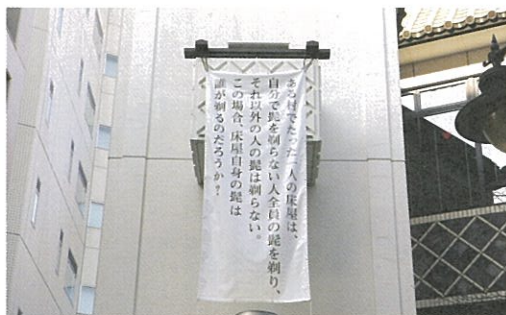 ある村でたった一人の床屋は、
自分で髭を剃らない人全員の髭を剃り、
それ以外の人の髭は剃らない。
この場合、床屋自身の髭は
誰が剃るのだろうか？